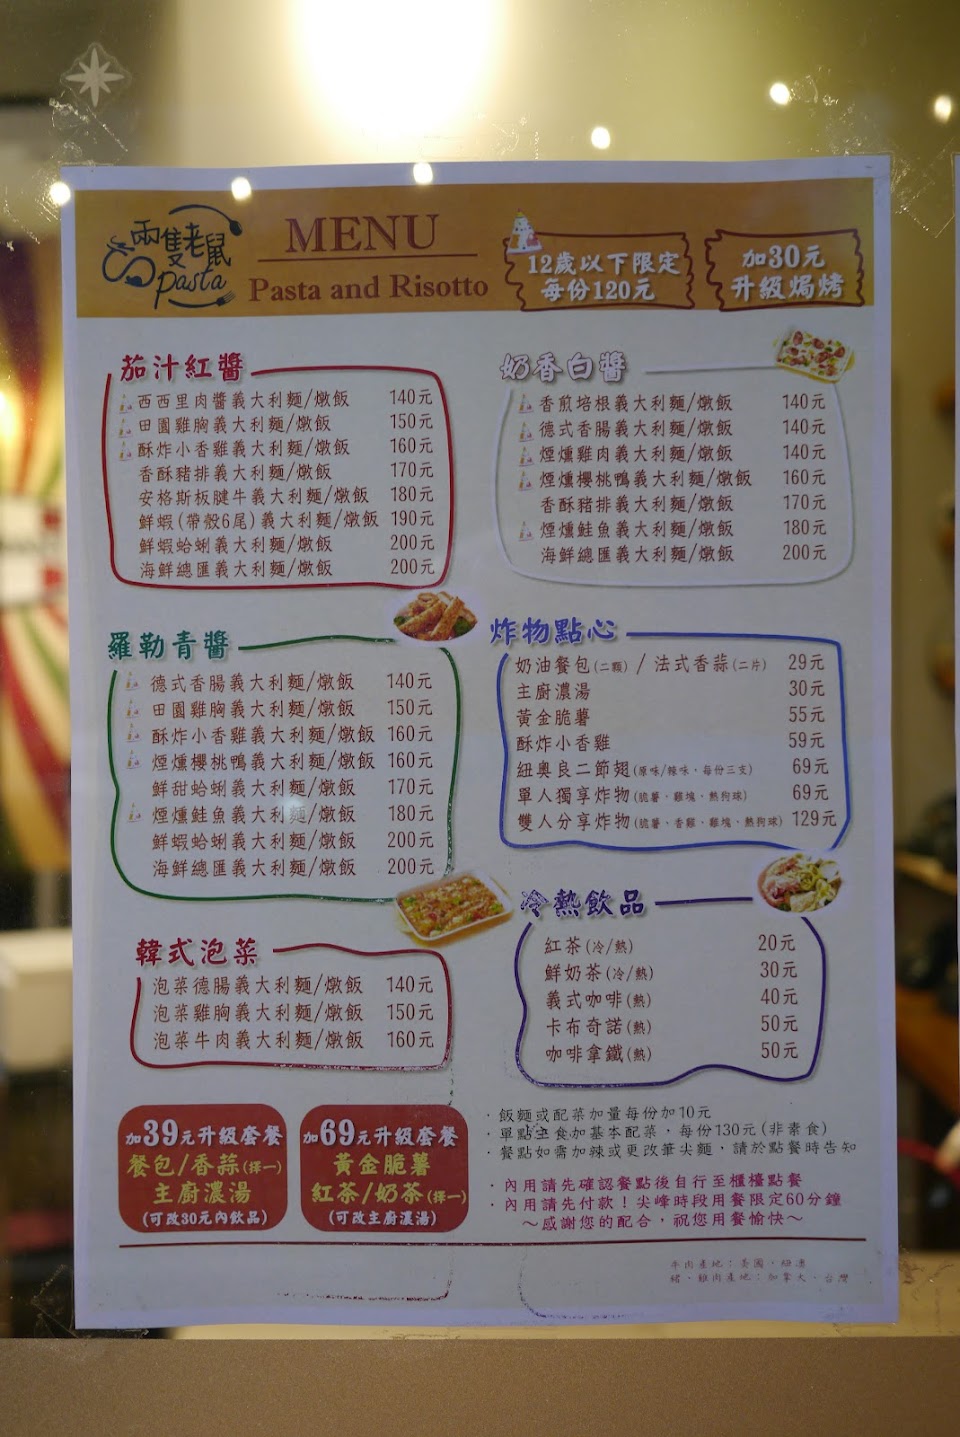 兩隻老鼠
pasta
MENU
Pasta and Risotto
12歲以下限定
每份120元
加30元
升級焗烤
茄汁紅醬
西西里肉醬義大利麵/燉飯 140元
田園雞胸義大利麵/燉飯 150元
酥炸小香雞義大利麵/燉飯 160元
香酥豬排義大利麵/燉飯 170元
安格斯板腱牛義大利麵/燉飯 180元
鮮蝦(帶殼6尾)義大利麵/燉飯 190元
鮮蝦蛤蜊義大利麵/燉飯 200元
海鮮總匯義大利麵/燉飯 200元
奶香白醬
香煎培根義大利麵/燉飯 140元
德式香腸義大利麵/燉飯 140元
煙燻雞肉義大利麵/燉飯 140元
煙燻櫻桃鴨義大利麵/燉飯 160元
香酥豬排義大利麵/燉飯 170元
煙燻鮭魚義大利麵/燉飯 180元
海鮮總匯義大利麵/燉飯 200元
羅勒青醬
德式香腸義大利麵/燉飯 140元
田園雞胸義大利麵/燉飯 150元
酥炸小香雞義大利麵/燉飯 160元
煙燻櫻桃鴨義大利麵/燉飯 160元
鮮甜蛤蜊義大利麵/燉飯 170元
煙燻鮭魚義大利麵/燉飯 180元
鮮蝦蛤蜊義大利麵/燉飯 200元
海鮮總匯義大利麵/燉飯 200元
炸物點心
奶油餐包(二顆) / 法式香蒜(二片) 29元
主廚濃湯 30元
黃金脆薯 55元
酥炸小香雞 59元
紐奧良二節翅(原味/辣味、每份三支) 69元
單人獨享炸物(脆薯、雞塊、熱狗球) 69元
雙人分享炸物(脆薯、香雞、雞塊、熱狗球) 129元
韓式泡菜
泡菜德腸義大利麵/燉飯 140元
泡菜雞胸義大利麵/燉飯 150元
泡菜牛肉義大利麵/燉飯 160元
冷熱飲品
紅茶(冷/熱) 20元
鮮奶茶(冷/熱) 30元
義式咖啡(熱) 40元
卡布奇諾(熱) 50元
咖啡拿鐵(熱) 50元
加39元升級套餐
餐包/香蒜(擇一)
主廚濃湯
(可改30元內飲品)
加69元升級套餐
黃金脆薯
紅茶/奶茶(擇一)
(可改主廚濃湯)
·飯麵或配菜加量每份加10元
·單點主食加基本配菜，每份130元(非素食)
·餐點如需加辣或更改筆尖麵，請於點餐時告知
·內用請先確認餐點後自行至櫃檯點餐
·內用請先付款！尖峰時段用餐限定60分鐘
～感謝您的配合，祝您用餐愉快～
牛肉產地：美國、紐澳
豬、雞肉產地：加拿大、台灣